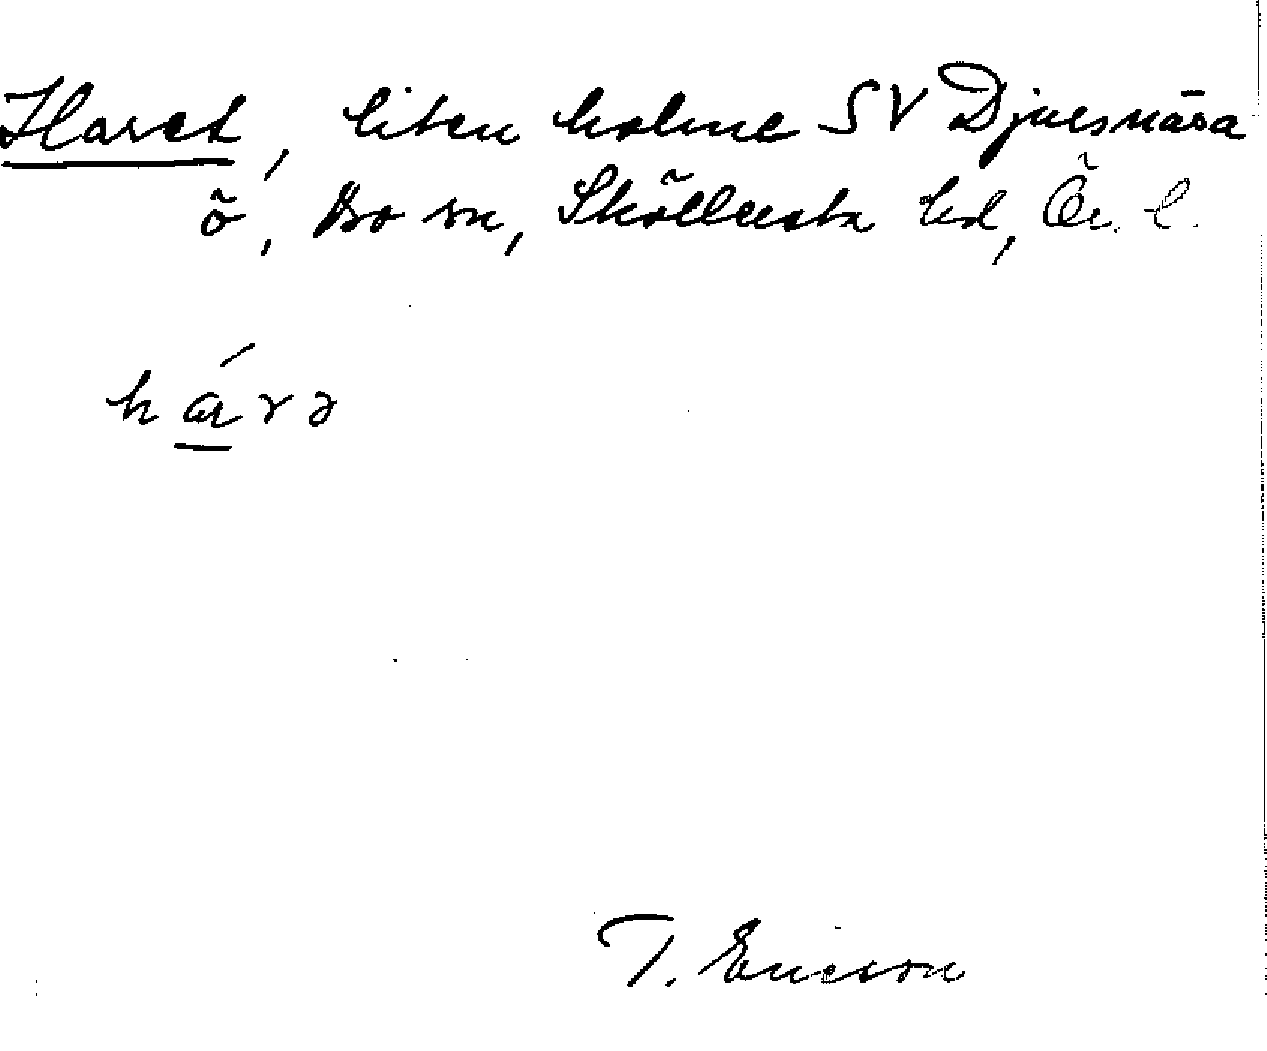 Haret, liten holme SV Djulsnäsa
ö, Bo sn, Sköllersta hd, Ör. l.
hárə
T. Ericson